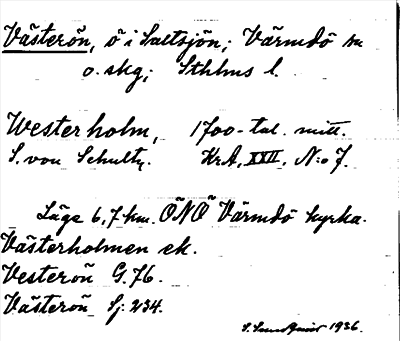 Västerön, ö i Saltsjön; Värmdö sn
o. skg; Sthlms l.
Westerholm, 1700-tal. mitt.
S. von Schultz. Kr.A. XXII. N:o 7.
Läge 6,7 km. ÖNÖ Värmdö kyrka.
Västerholmen ek.
Vesterön G. 76.
Västerön Sj. 234.
1936.